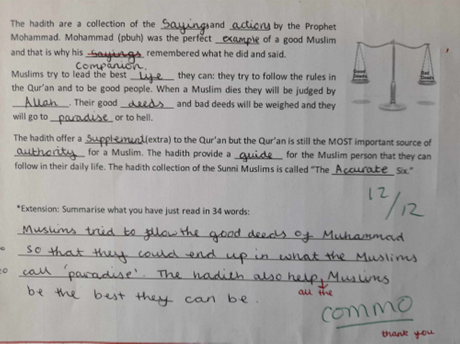 The hadith are a collection of the Sayings and actions by the Prophet
Mohammad. Mohammad (pbuh) was the perfect example of a good Muslim
and that is why his sayings remembered what he did and said.
Companion.
Muslims try to lead the best life they can: they try to follow the rules in
the Qur'an and to be good people. When a Muslim dies they will be judged by
Allah. Their good deeds and bad deeds will be weighed and they
will go to paradise or to hell.
The hadith offer a Supplement (extra) to the Qur'an but the Qur'an is still the MOST important source of
authority for a Muslim. The hadith provide a guide for the Muslim person that they can
follow in their daily life. The hadith collection of the Sunni Muslims is called "The Accurate Six."
12/12
*Extension: Summarise what you have just read in 34 words:
Muslims tried to follow the good deeds of Muhammad
so that they could end up in what the Muslims
call 'paradise'. The hadith also help Muslims
all the
be the best they can be.
COMMO
thank you